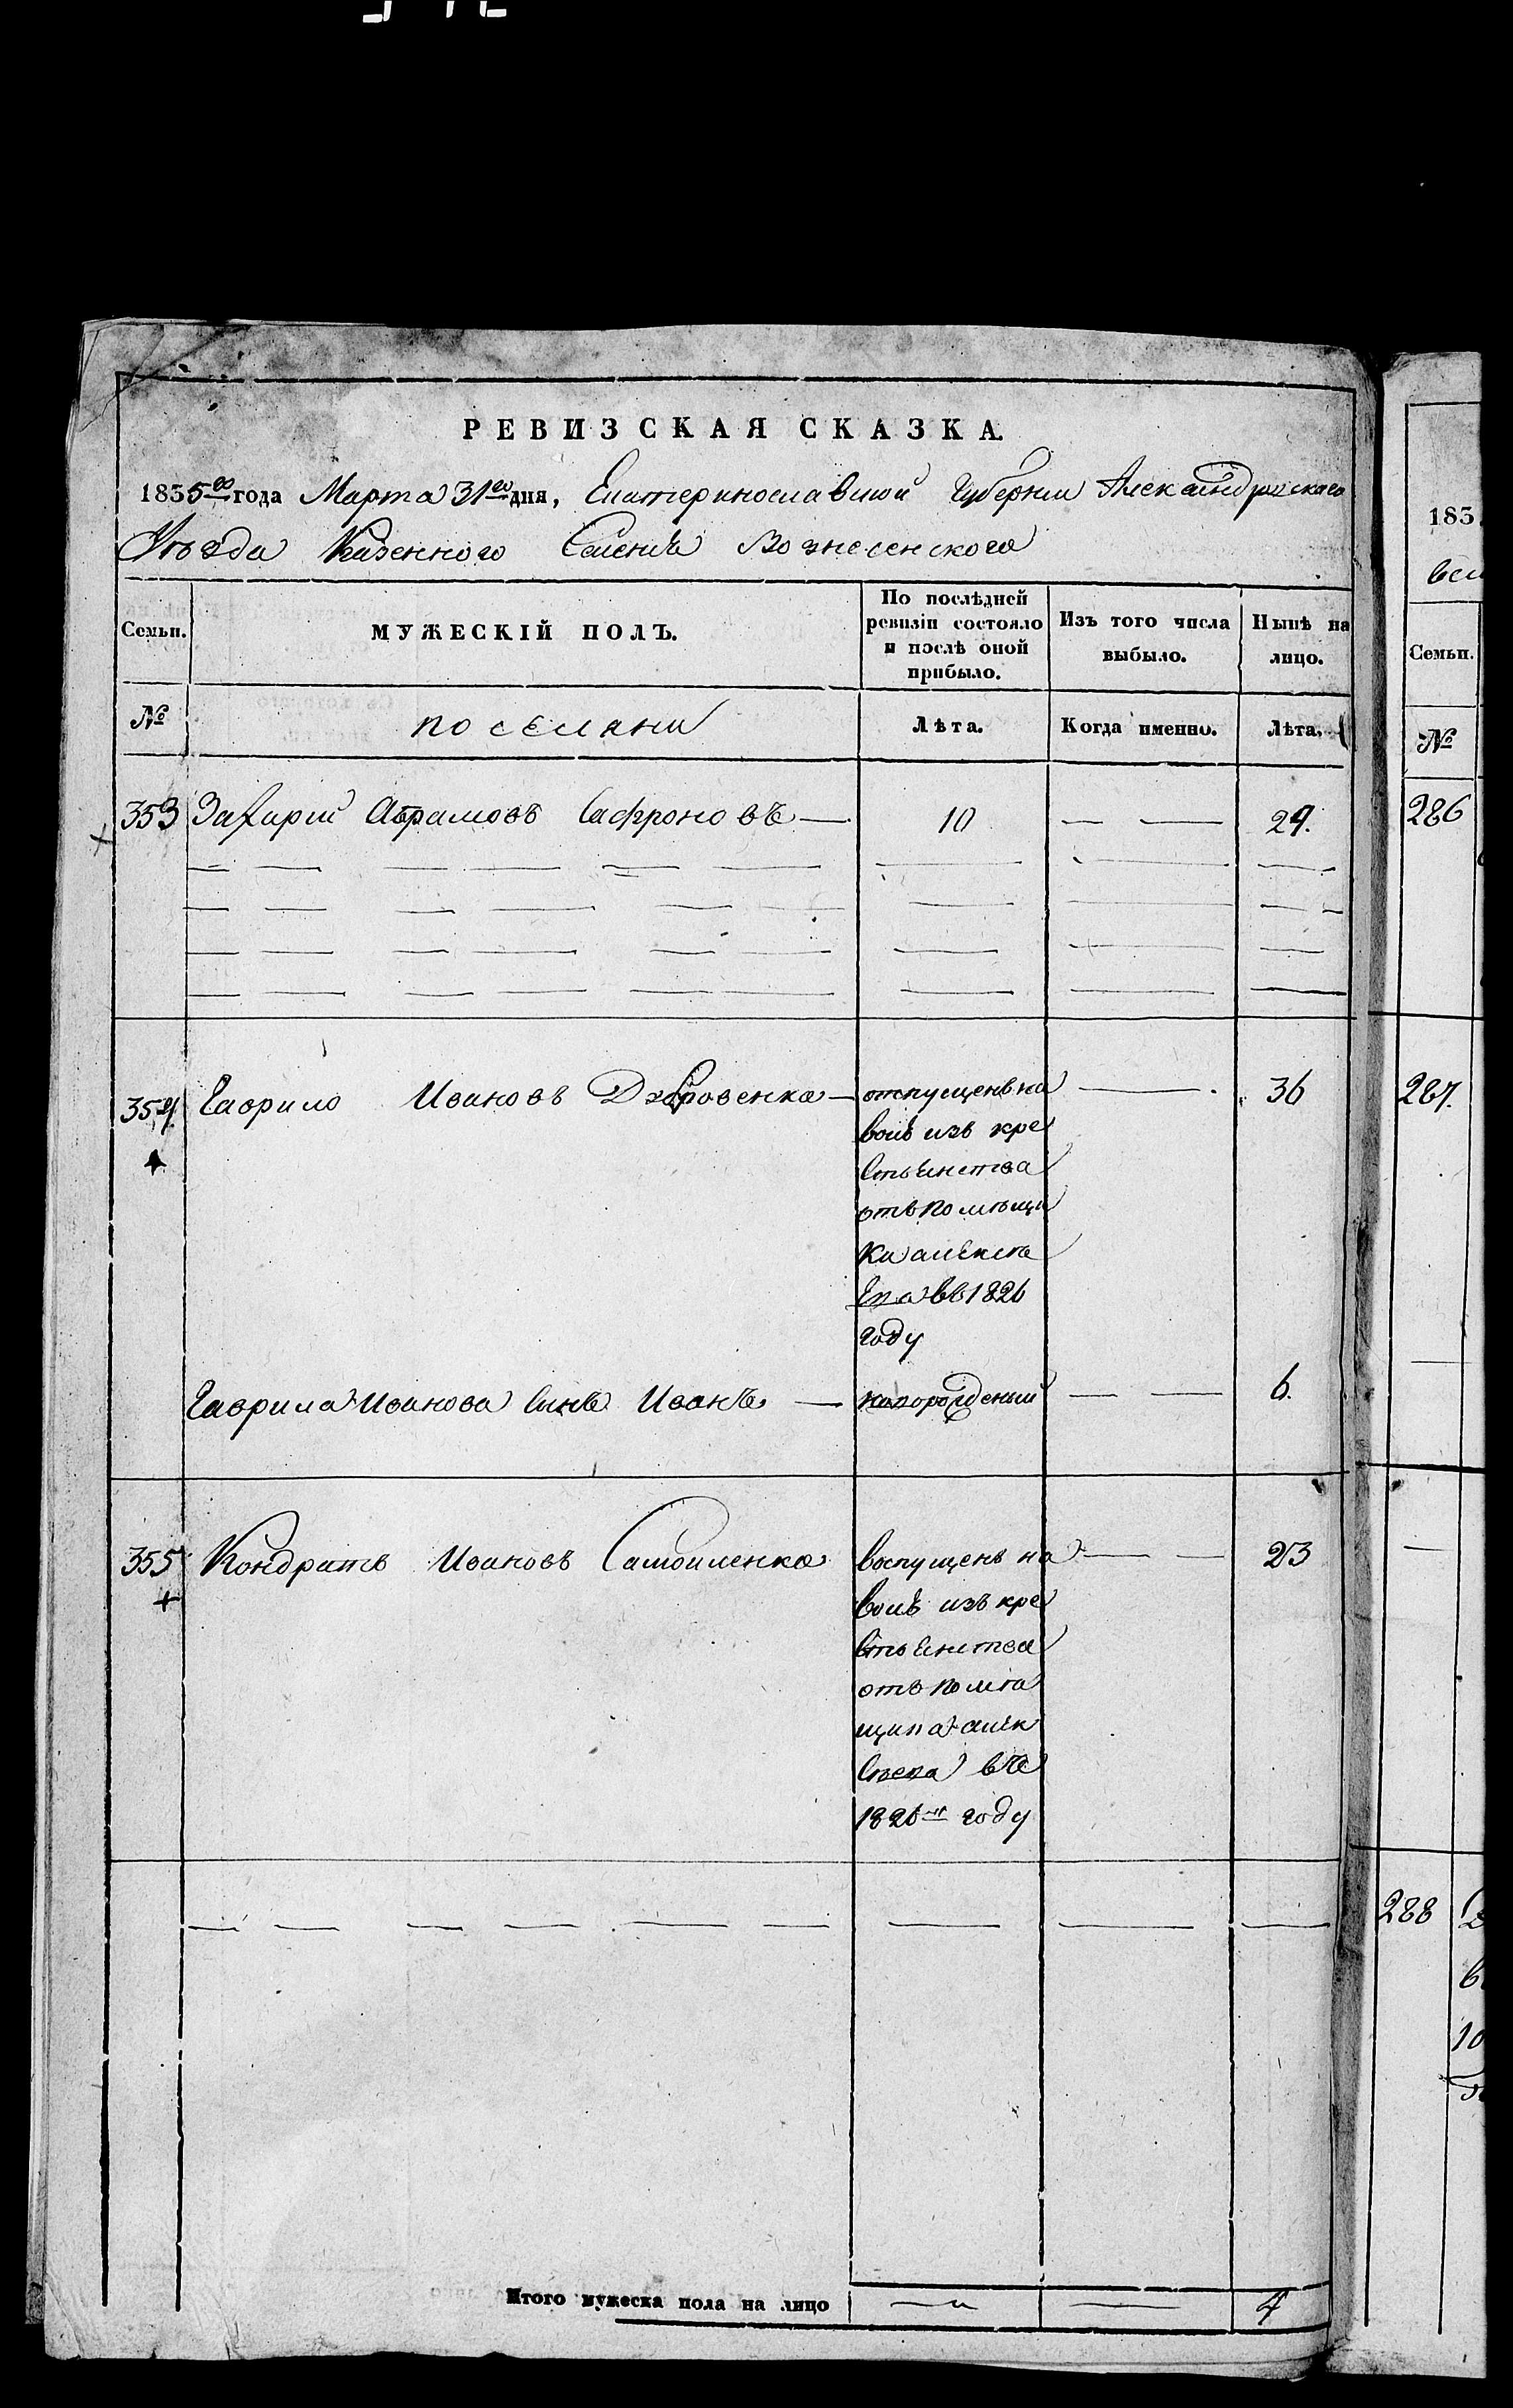 РЕВИЗСКАЯ СКАЗКА.
1835го года Марта 31го дня, Екатеринославской Губернии Александровского
Уезда Казенного Селения Вознесенского
Семьи.
МУЖЕСКІЙ ПОЛЪ.
По послѣдней ревизіи состояло и послѣ оной прибыло.
Изъ того числа выбыло.
Нынѣ на лицо.
№
поселяни
Лѣта.
Когда именно.
Лѣта.
353 Захарий Абрамовъ Сафроновъ — 10 — — 29.
354 Гаврило Ивановъ — отпущенъ на — 36
волю изъ кре
стьянства
отъ помещи
ка
въ 1826
году
Гаврила Иванова сынъ Иванъ — новорожденый — — 6.
355 Кондратъ Ивановъ Самойленко воспущенъ на — — 23
волю изъ кре
стьянства
отъ поме
щика
въ
1826м году
Итого мужеска пола на лицо — — 4
183
Семьи.
№
286
287.
288
10